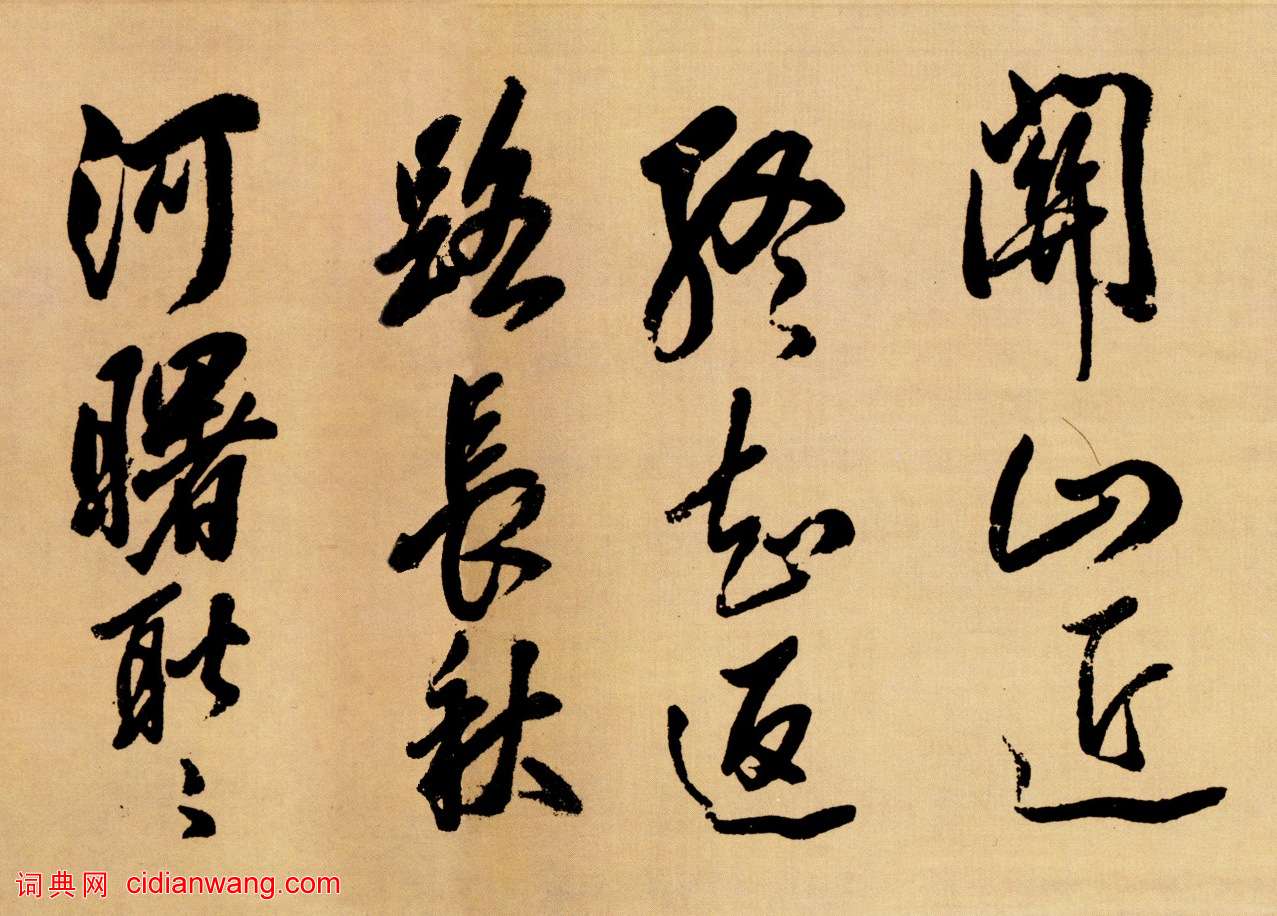 關山近
終知返
路長秋
河曙耿〻
词典网 cidianwang.com